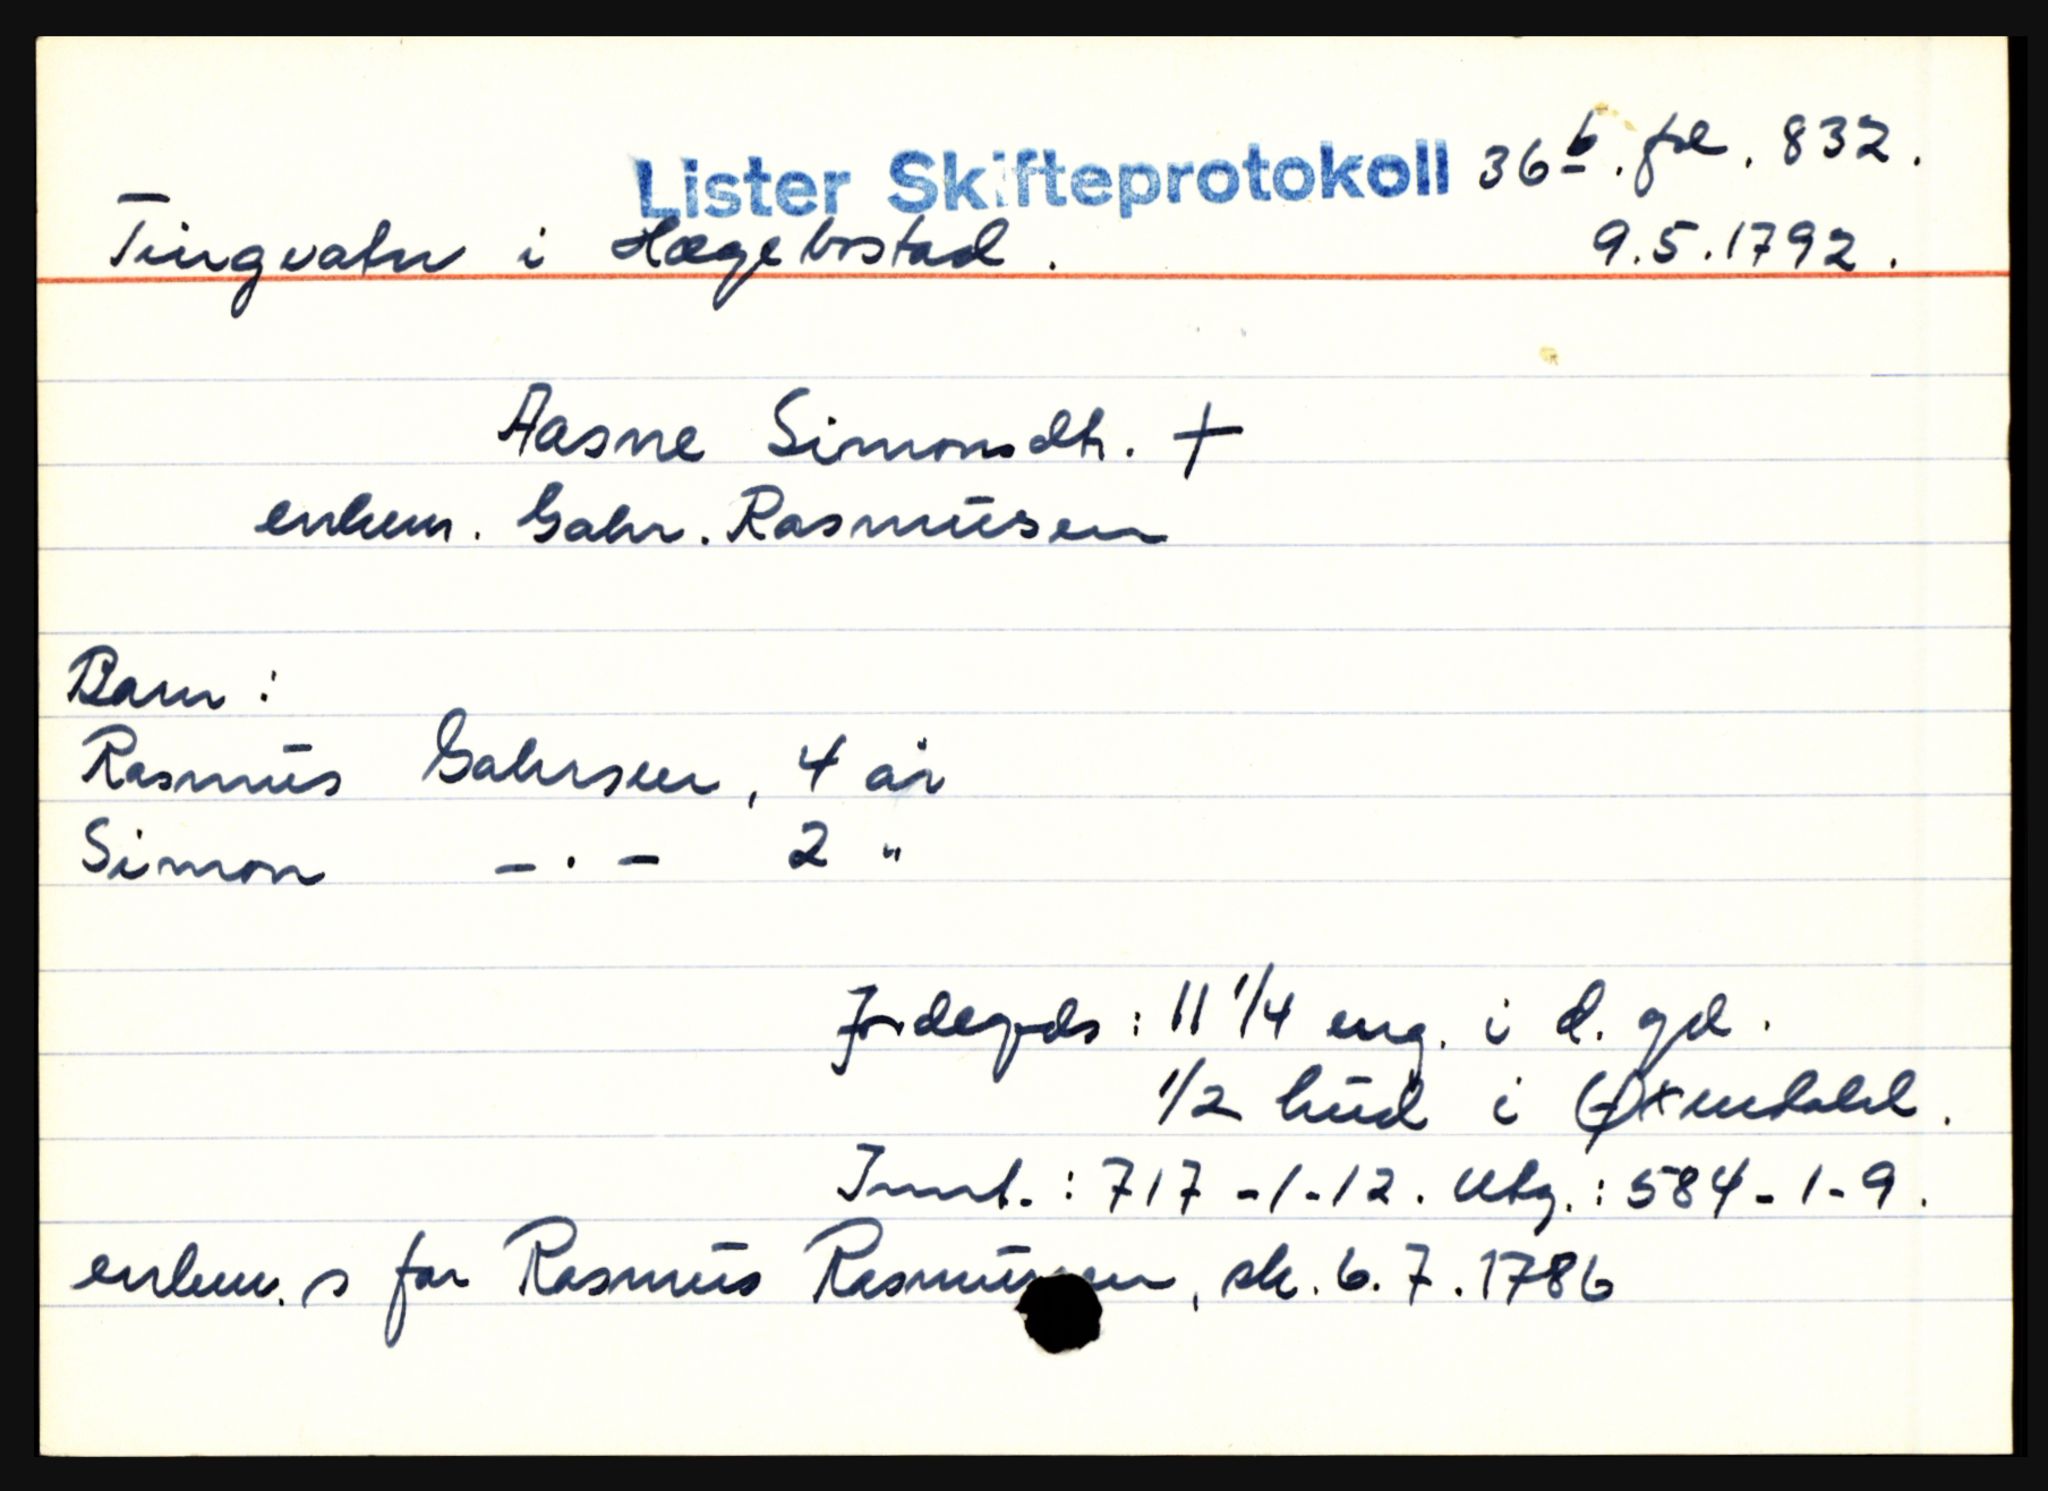 Lister Skifteprotokoll 36b. fol. 832.
Tingvatn i Hægebostad. 9.5.1792.
Aasne Simonsdtr. +
enkem. Gabr. Rasmusen
Barn:
Rasmus Gabrsen, 4 år
Simon -.- 2 "
Jordegds: 11 1/4 eng. i d. gd.
1/2 hud i Øxendahl.
Innt.: 717-1-12. Utg.: 584-1-9.
enkem. s far Rasmus Rasmussen, sk. 6.7.1786